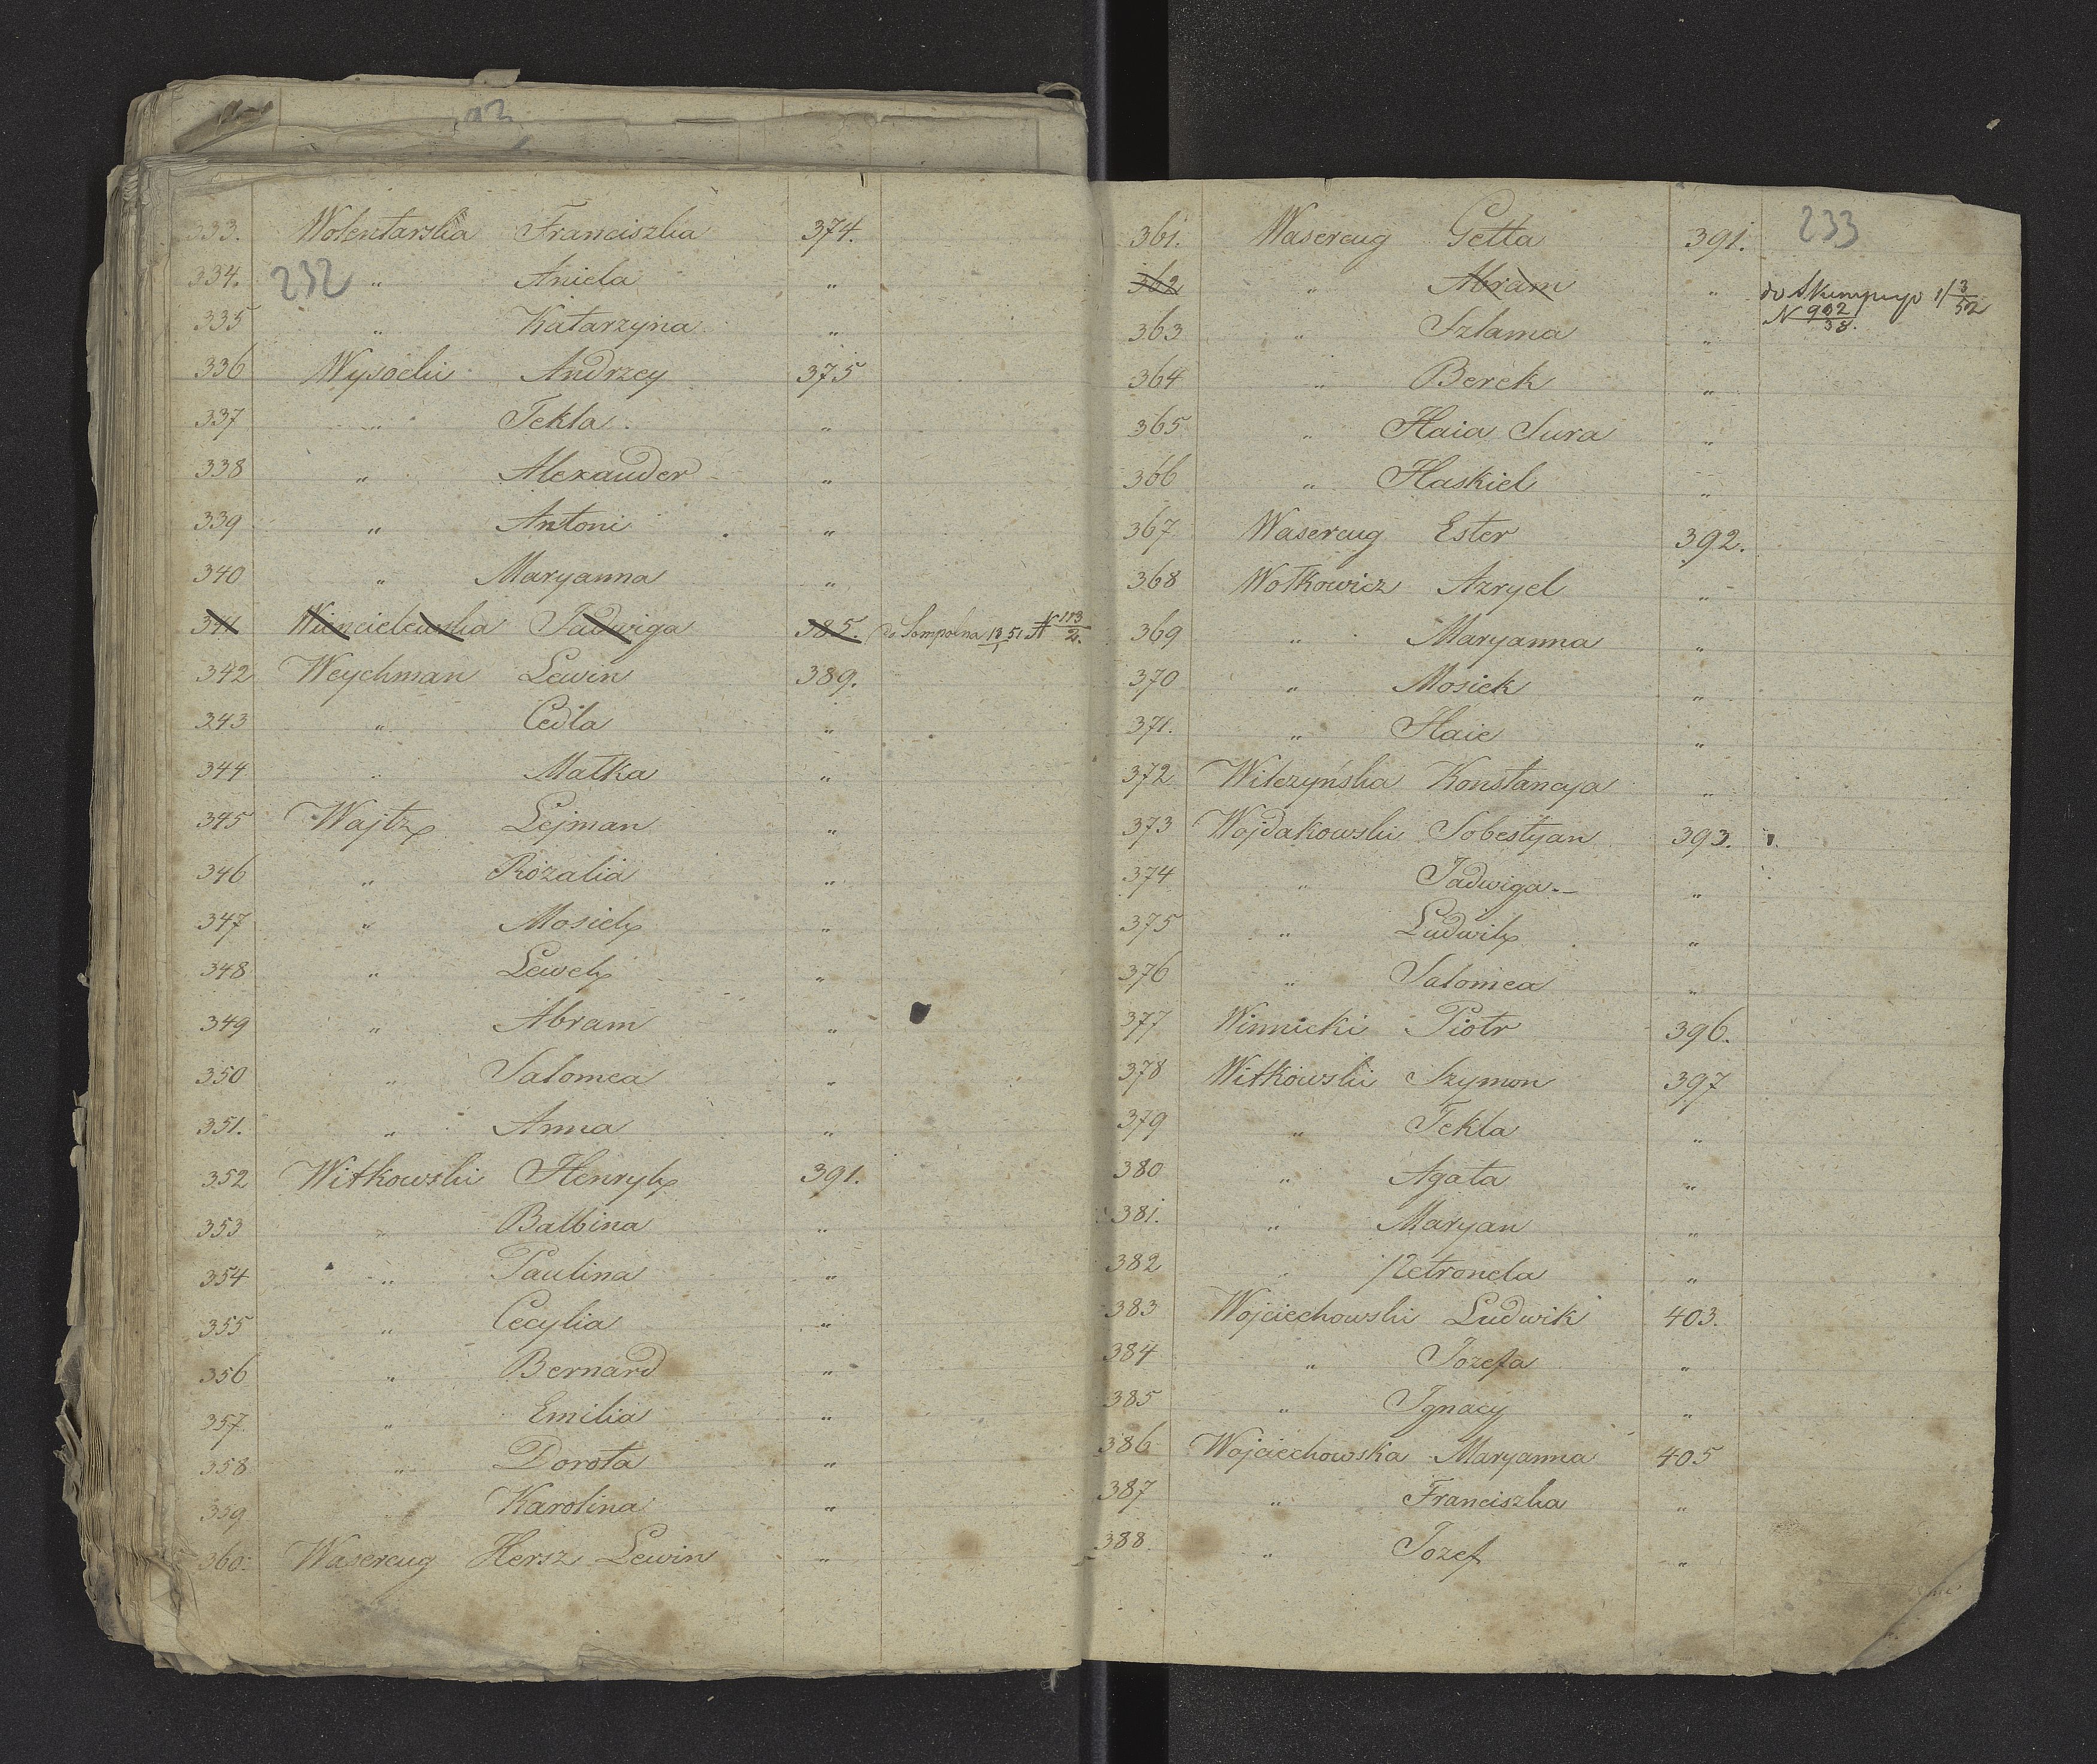 333. Wolentarska Franciszka 374.
334. 232 " Aniela "
335 " Katarzyna "
336 Wysocki Andrzey 375
337 " Tekla "
338 " Alexander "
339 " Antoni "
340 " Maryanna "
341 Jadwiga 385. do Sompolna 13/1 51 N 113/2.
342 Weychman Lewin 389.
343 " Cedla "
344 " Małka "
345 Wajtz Lejman "
346 " Rozalia "
347 " Mosiek "
348 " Lewek "
349 " Abram "
350 " Salomea "
351. " Anna "
352 Witkowski Henryk 391.
353 " Balbina "
354 " Paulina "
355 " Cecylia "
356 " Bernard "
357 " Emilia "
358 " Dorota "
359 " Karolina "
360. Wasercug Hersz Lewin "
233
361. Wasercug Getta 391.
362 " Abram " do 1/3 52
N 902/38.
363 " Szlama "
364 " Berek "
365 " Haia Sura "
366 " Haskiel "
367 Wasercug Ester 392.
368 Wołkowicz Azryel "
369 " Maryanna "
370 " Mosiek "
371. " Haie "
372 Wilczyńska Konstancya "
373 Wojdakowski Sobestyan 393.
374 " Jadwiga "
375 " Ludwik "
376 " Salomea "
377 Winnicki Piotr 396.
378 Witkowski Szymon 397
379 " Tekla "
380 " Agata "
381. " Maryan "
382 " Petronela "
383 Wojciechowski Ludwik 403.
384 " Jozefa "
385 " Ignacy "
386 Wojciechowska Maryanna 405
387 " Franciszka "
388. " Jozef "